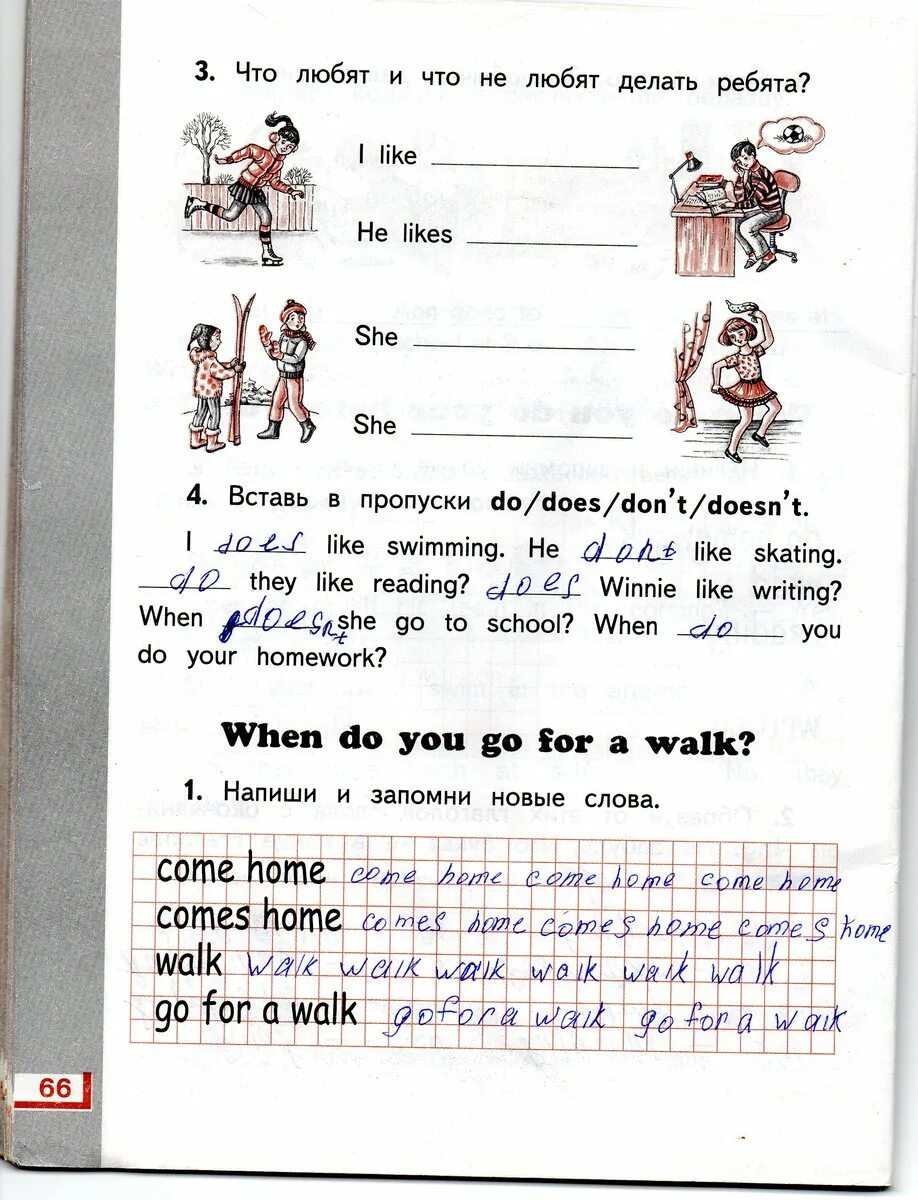 3. Что любят и что не любят делать ребята?
I like
He likes
She
She
4. Вставь в пропуски do/does/don't/doesn't.
I does like swimming. He dont like skating.
do they like reading? does Winnie like writing?
When doesnt she go to school? When do you
do your homework?
When do you go for a walk?
1. Напиши и запомни новые слова.
come home come home come home come home
comes home comes home comes home comes home
walk walk walk walk walk walk walk
go for a walk go for a walk go for a walk
66